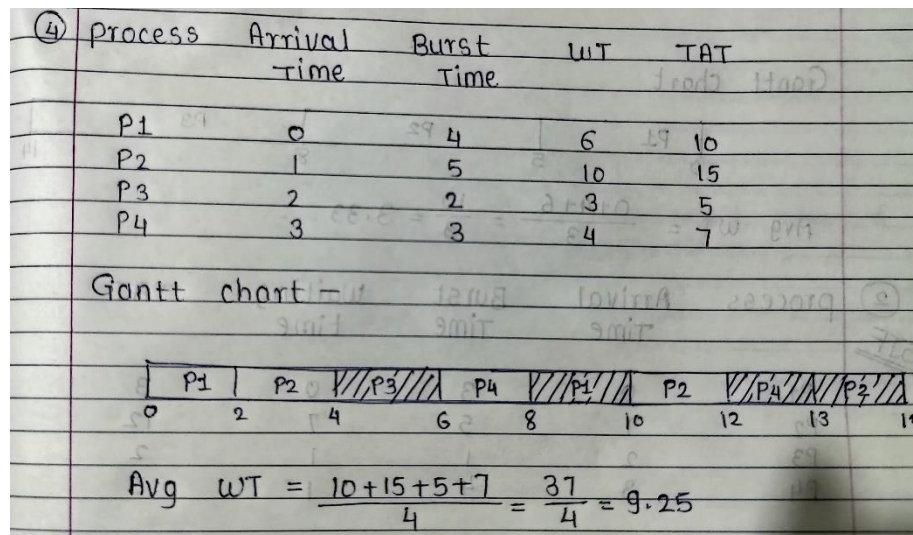 ④ Process Arrival Time Burst Time WT TAT
P1 0 4 6 10
P2 1 5 10 15
P3 2 2 3 5
P4 3 3 4 7
Gantt chart -
P1 P2 P3 P4 P1 P2 P4 P2
0 2 4 6 8 10 12 13
Avg WT = 10+15+5+7 / 4 = 37 / 4 = 9.25